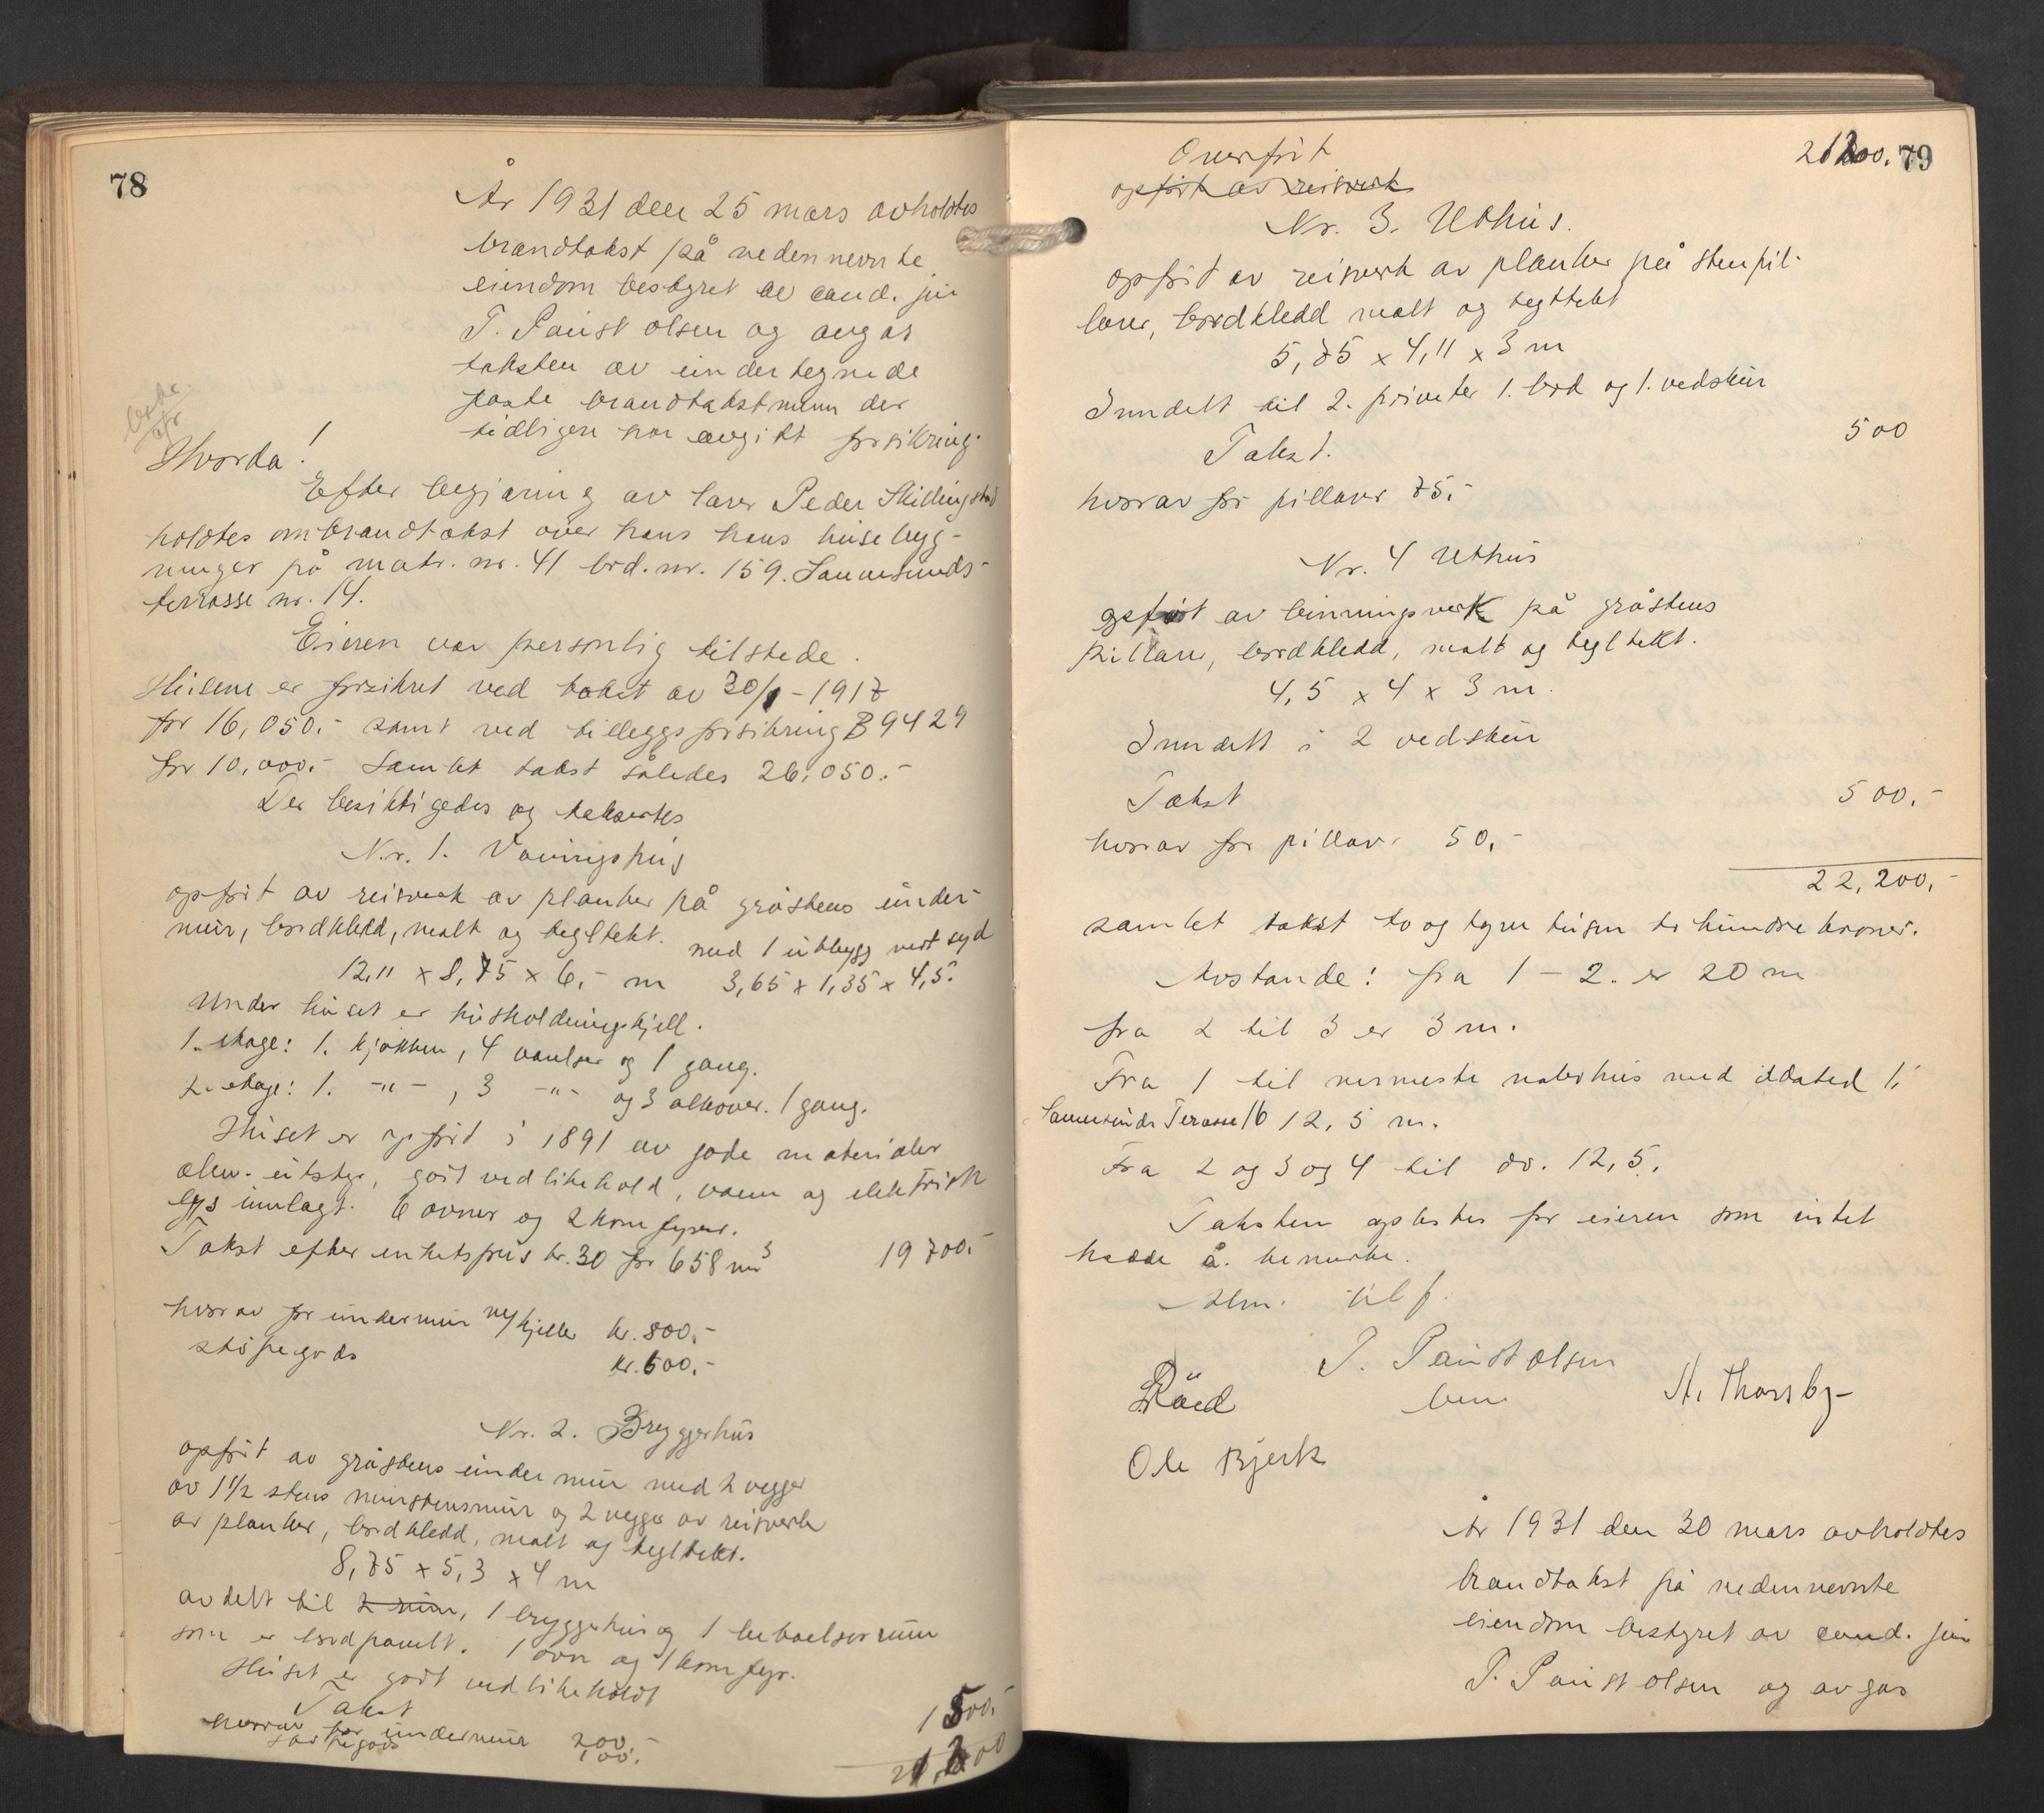 78
År 1931 den 25 mars avholdtes
brandtakst på nedennevnte
eiendom bestyret av cand. jur
T. Paust olsen og avgas
taksten av undertegnede
faste brandtakstmenn der
tidligere har avgitt forsikring.
Hvorda!
Efter begjæring av lærer Peder Skillingstad
holdtes ombrandtakst over hans hans husebygg-
ninger på matr. nr. 41 brd. nr. 159. Sannesunds-
terrasse nr. 14.
Eieren var personlig tilstede.
Husene er forsikret ved takst av 30/1 - 1917
for 16,050.- samt ved tilleggsforsikring B 9429
for 10,000.- Samlet takst således 26,050.-
Der besiktigedes og taksertes
Nr. 1. Våningshus
opført av reisverk av planker på gråstens under-
mur, bordkledd, malt og tegltekt. med 1 utbygg vest syd
12,11 x 8,75 x 6,- m 3,65 x 1,35 x 4,5.
Under huset er husholdningskjell.
1. etage: 1. kjøkken, 4 værelser og 1 gang.
2. etage: 1. -"- , 3 -"- og 3 alkover. 1 gang.
Huset er opført i 1891 av gode materialer
alm. utstyr, godt vedlikehold, vann og elektrisk
lys innlagt. 6 ovner og 2 komfyrer.
Takst efter enhetspris kr. 30 for 658 m³ 19 700.-
hvorav for undermur m/kjeller kr. 800.-
støpegods kr. 600.-
Nr. 2. Bryggerhus
opført av gråstens under mur med 2 vegger
av 1½ stens murstensmur og 2 vegger av reisverk
av planker, bordkledd, malt og tegltekt.
8,75 x 5,3 x 4 m
avdelt til 2 rum, 1 bryggerhus og 1 beboelsesrum
som er bordpanelt. 1 ovn og 1 komfyr.
Huset er godt vedlikeholdt
Takst 1500.-
hvorav for undermur 200.-
støpegods 100.
21,200
21200. 79
Overført
opført av reisverk
Nr. 3. Uthus.
opført av reisverk av planker på stenpil-
larer, bordkledd malt og tegltekt
5,75 x 4,11 x 3 m
Inndelt til 2. priveter 1. bod og 1. vedskur
Takst. 500
hvorav for pillarer 75.-
Nr. 4 Uthus
opført av binningsverk på gråstens
pillarer, bordkledd, malt og tegltekt.
4,5 x 4 x 3 m.
Inndelt i 2 vedskur
Takst 500.-
hvorav for pillar. 50.-
22,200.-
samlet takst to og tyve tusen to hundre kroner.
Avstande: fra 1 - 2. er 20 m
fra 2 til 3 er 3 m.
Fra 1 til nermeste nabohus med ildsted 1.
Sannesunds Terasse 16 12,5 m.
Fra 2 og 3 og 4 til do. 12,5.
Taksten oplestes for eieren som intet
hadde å bemerke.
T. Paust olsen
Røed H. Thorsby
Ole Bjerk
År 1931 den 30 mars avholdtes
brandtakst på nedennevnte
eiendom bestyret av cand. jur
T. Paust olsen og avgas